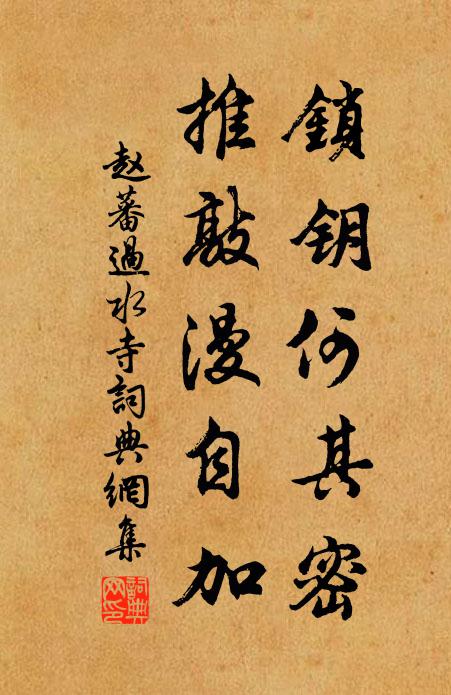 鎖钥何其密
推敲漫自加
赵蕃過水寺詞典網集
詞典网印